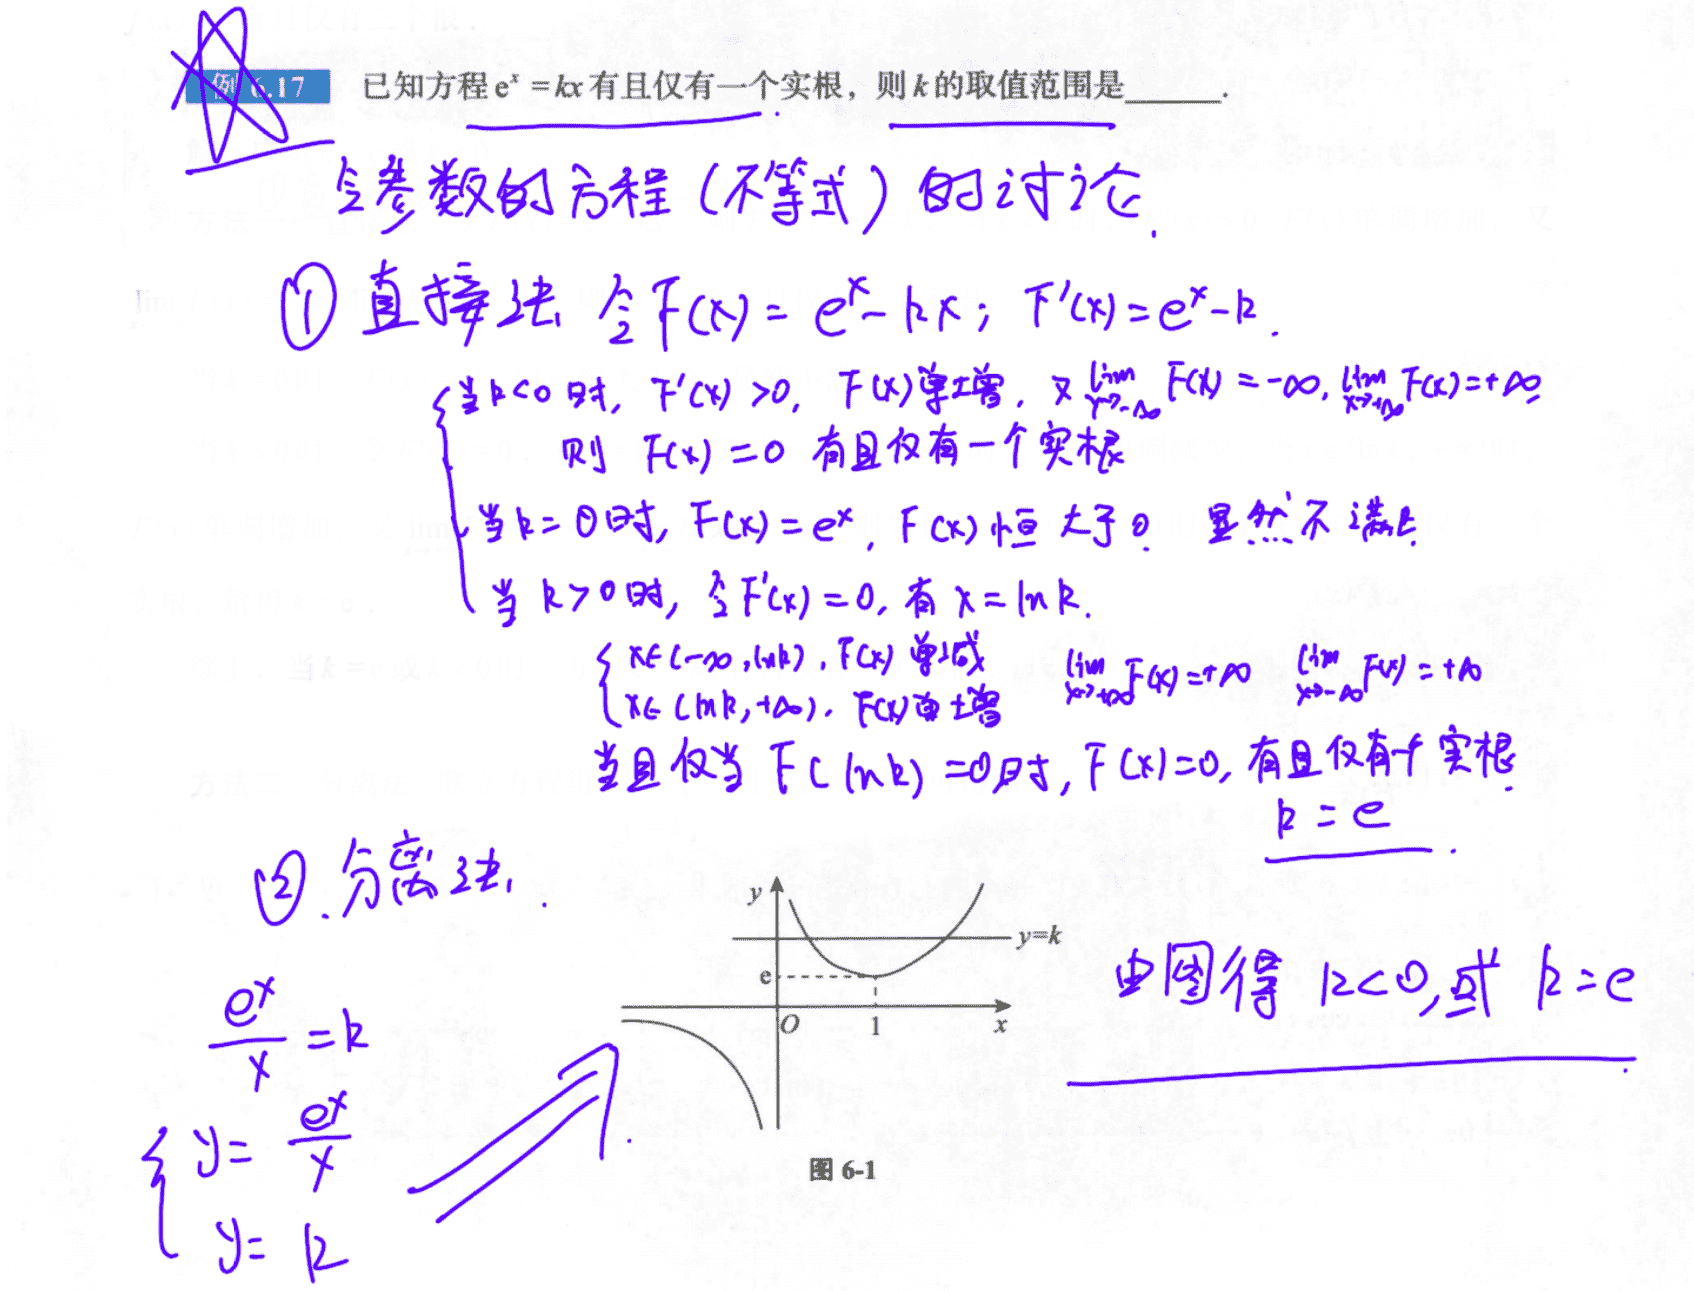 例 6.17 已知方程 eˣ = kx 有且仅有一个实根，则 k 的取值范围是______.
含参数的方程（不等式）的讨论.
① 直接法 令 F(x) = eˣ - kx; F'(x) = eˣ - k.
当 k<0 时, F'(x) >0, F(x) 单增, 又 lim x→-∞ F(x) = -∞, lim x→+∞ F(x) = +∞
则 F(x) = 0 有且仅有一个实根
当 k = 0 时, F(x) = eˣ, F(x) 恒大于0. 显然不满足
当 k>0 时, 令 F'(x) = 0, 有 x = ln k.
x∈(-∞, lnk), F(x) 单减 lim x→+∞ F(x) = +∞ lim x→-∞ F(x) = +∞
x∈(lnk, +∞), F(x) 单增
当且仅当 F(ln k) = 0时, F(x) = 0, 有且仅有一个实根.
k = e
② 分离法.
y
y=k
e
O
1
x
由图得 k<0, 或 k = e
eˣ/x = k
y = eˣ/x
y = k
图 6-1